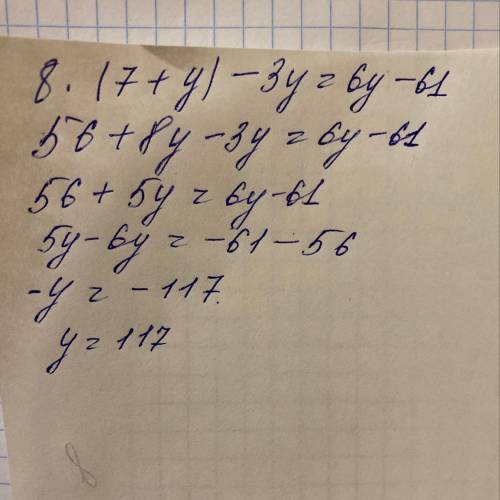 8. (7 + y) - 3y = 6y - 61
56 + 8y - 3y = 6y - 61
56 + 5y = 6y - 61
5y - 6y = -61 - 56
-y = -117.
y = 117
8